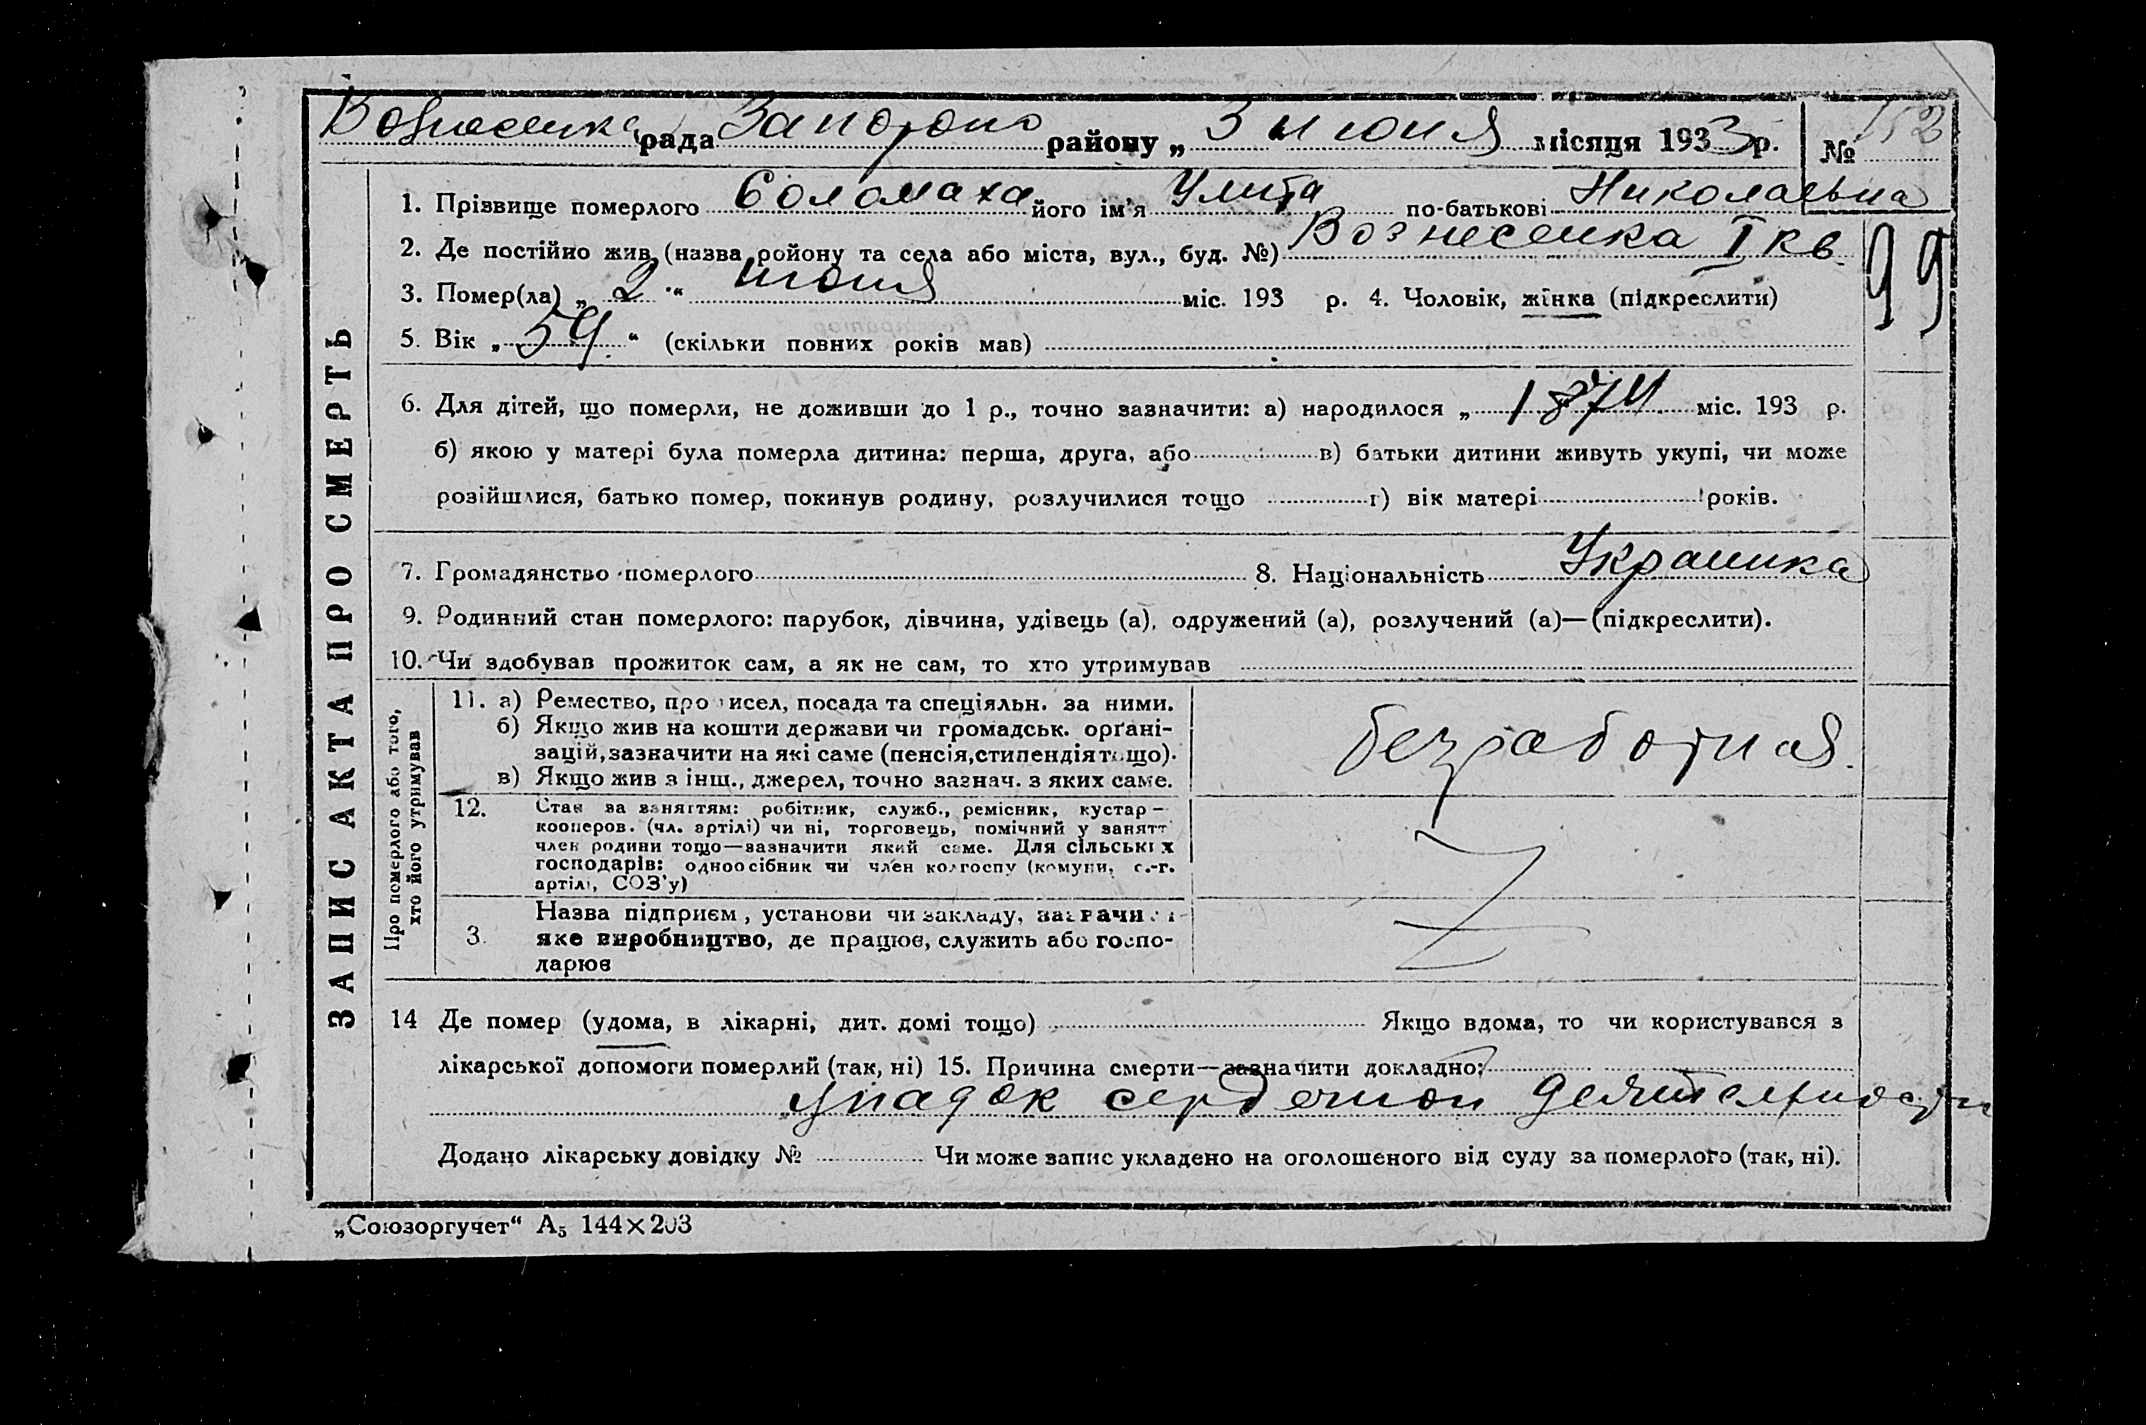 Вознесенка рада Запорож району „ 3 июня місяця 1933 р. № 152
1. Прізвище померлого Соломаха його ім'я Улита по-батькові Николаевна
2. Де постійно жив (назва ройону та села або міста, вул., буд. №) Вознесенка I кв.
99
3. Помер(ла) „ 2 “ июня міс. 193 р. 4. Чоловік, жінка (підкреслити)
5. Вік „ 59 “ (скільки повних років мав)
6. Для дітей, що померли, не доживши до 1 р., точно зазначити: а) народилося „ 1874 міс. 193 р.
б) якою у матері була померла дитина: перша, друга, або в) батьки дитини живуть укупі, чи може
розійшлися, батько помер, покинув родину, розлучилися тощо г) вік матері років.
7. Громадянство померлого 8. Національність Украинка
9. Родинний стан померлого: парубок, дівчина, удівець (а), одружений (а), розлучений (а)—(підкреслити).
10. Чи здобував прожиток сам, а як не сам, то хто утримував
ЗАПИС АКТА ПРО СМЕРТЬ
Про померлого або того,
хто його утримував
11. а) Ремество, про исел, посада та спеціяльн. за ними.
б) Якщо жив на кошти держави чи громадськ. орґані-
зацій, зазначити на які саме (пенсія, стипендія тощо).
в) Якщо жив з інш., джерел, точно зазнач. з яких саме.
безработная
12. Стан за заняттям: робітник, служб., ремісник, кустар —
кооперов. (чл. артілі) чи ні, торговець, помічний у занятт
член родини тощо—зазначити який саме. Для сільських
господарів: одноосібник чи член колгоспу (комуни, с.-г.
артілі, СОЗ'у)
3. Назва підприєм, установи чи закладу, зазначи
яке виробництво, де працює, служить або госпо-
дарює
14 Де помер (удома, в лікарні, дит. домі тощо) Якщо вдома, то чи користувався з
лікарської допомоги померлий (так, ні) 15. Причина смерти—зазначити докладно:
упадок сердечной деятельности
Додано лікарську довідку № Чи може запис укладено на оголошеного від суду за померлого (так, ні).
„Союзоргучет“ А5 144×203